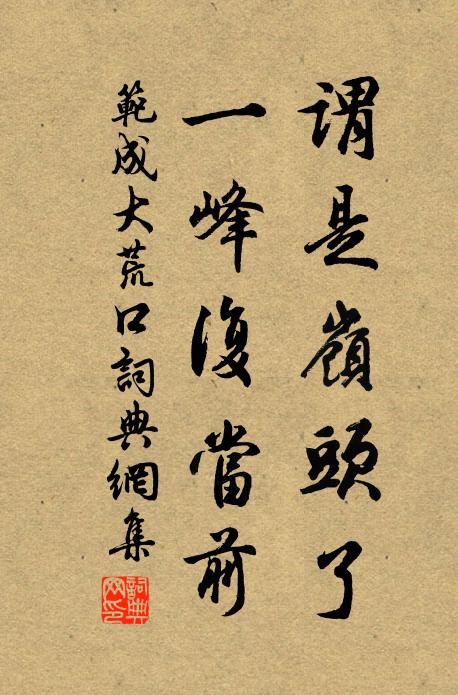 謂是嶺頭了
一峰復當前
範成大荒口詞典網集
詞典
网印